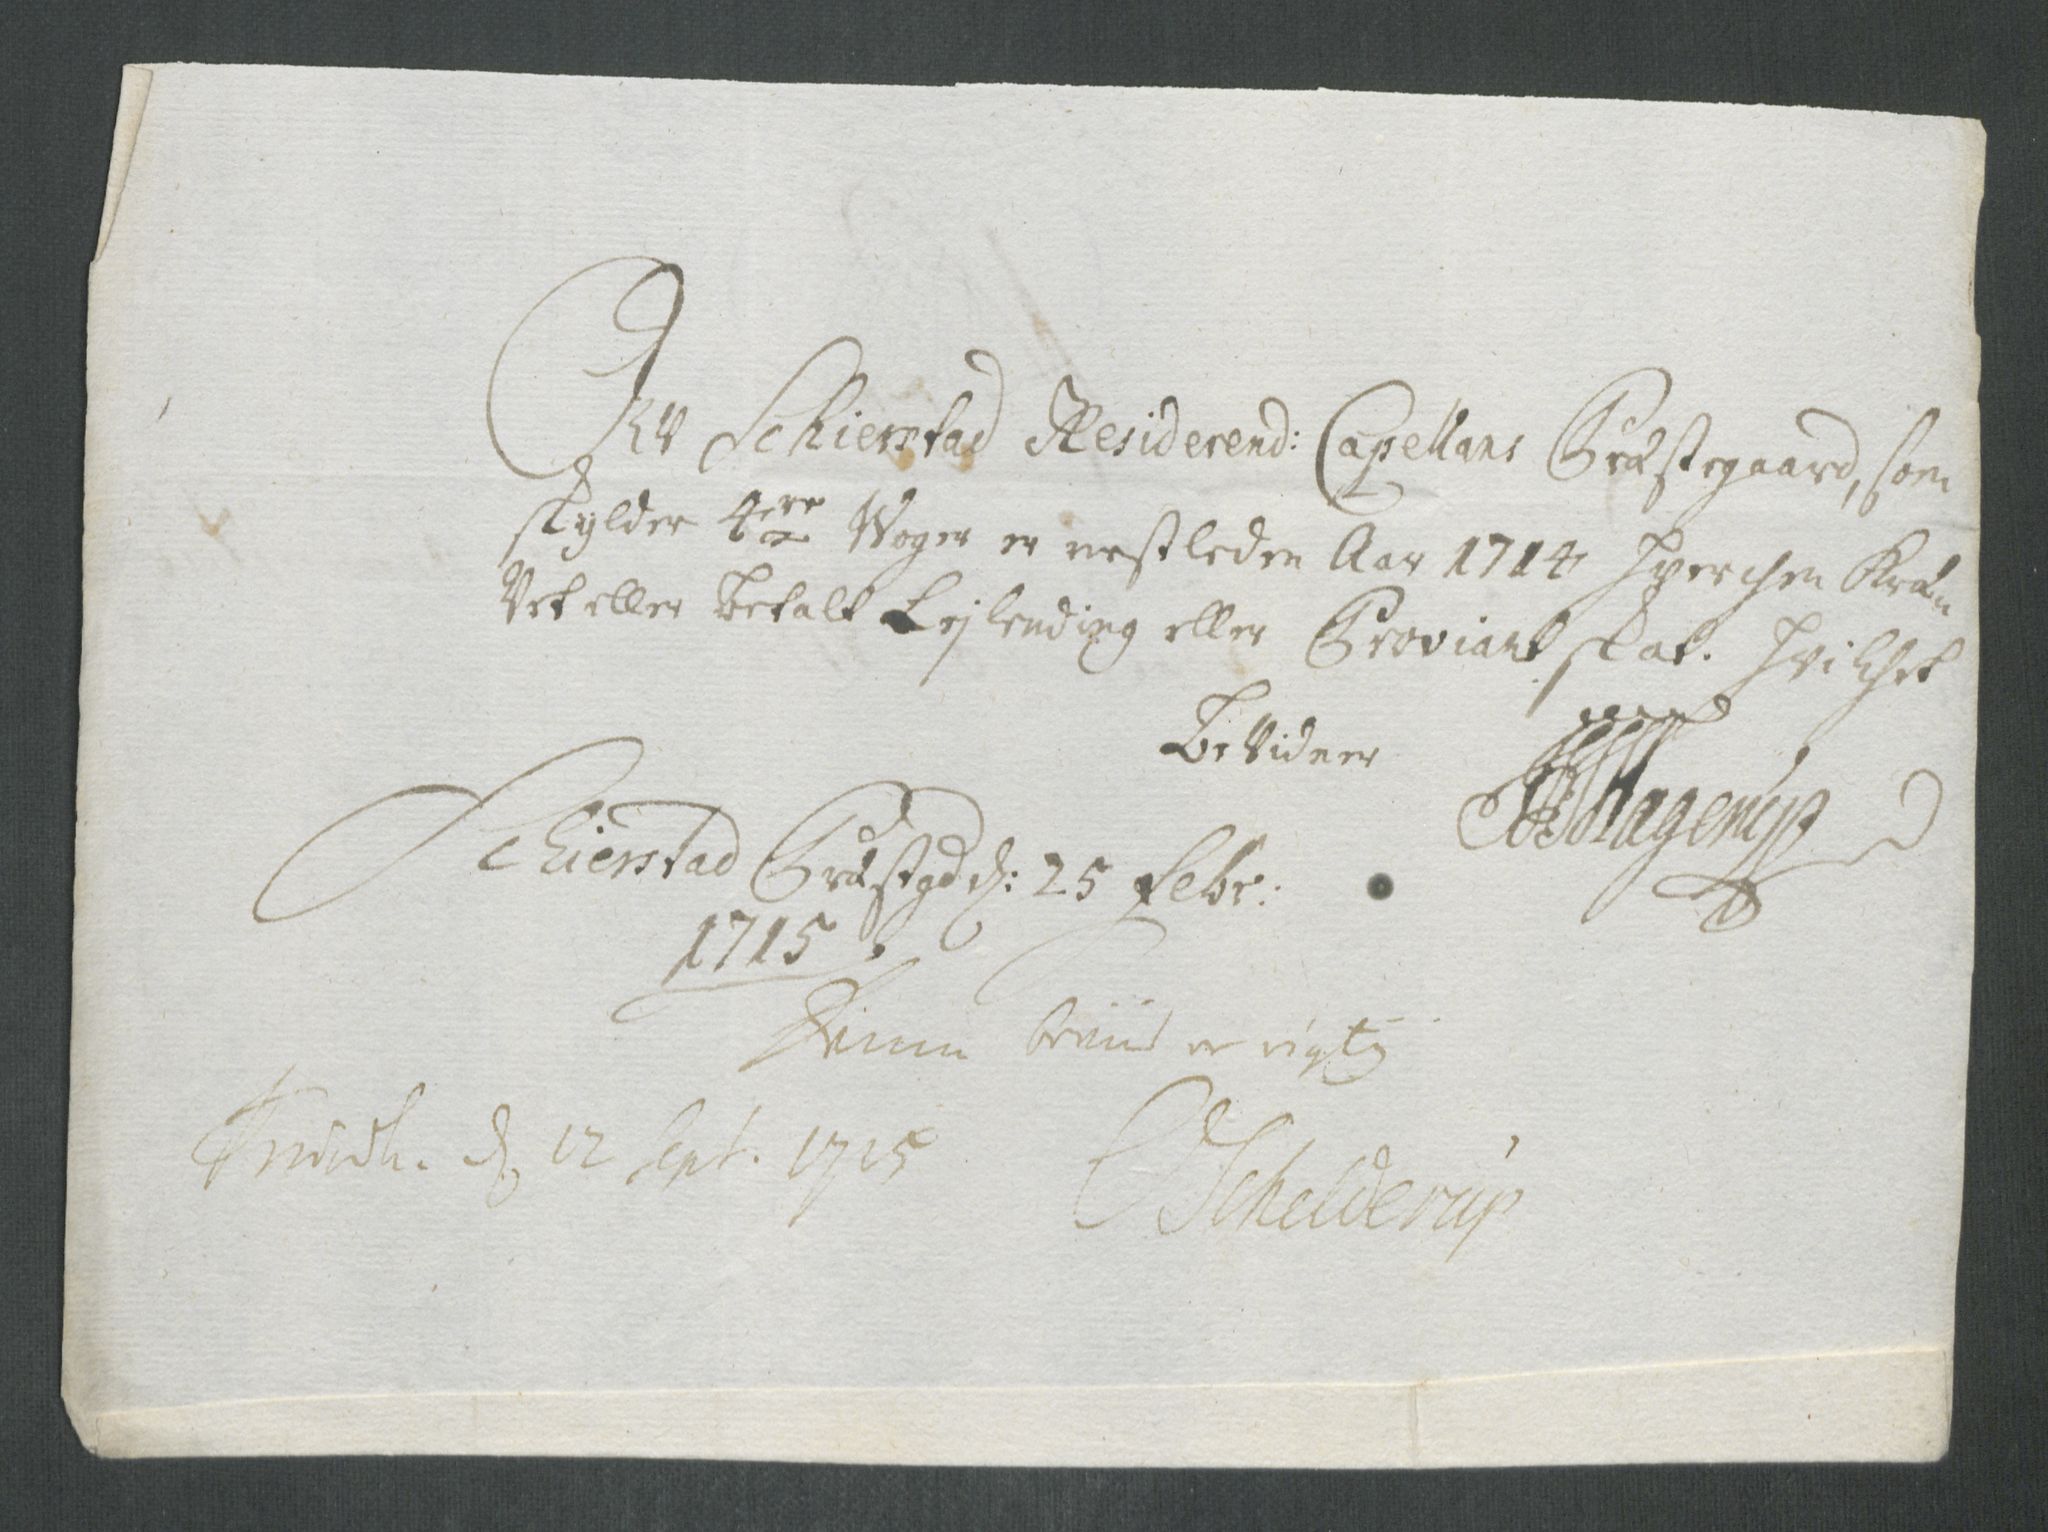 Av Schierstad Residerend: Capellans Præstegaard, som
skylder 4re Woger er nestleden Aar 1714 hverchen Kræ-
vet eller betalt Lejlending eller Proviant skat. hvilchet
bevidner
Hagerup
Schierstad Præstgd d: 25 Febr:
1715
Denne beviis er rigtig
Tronh. d 12 Sept. 1715
Schelderup